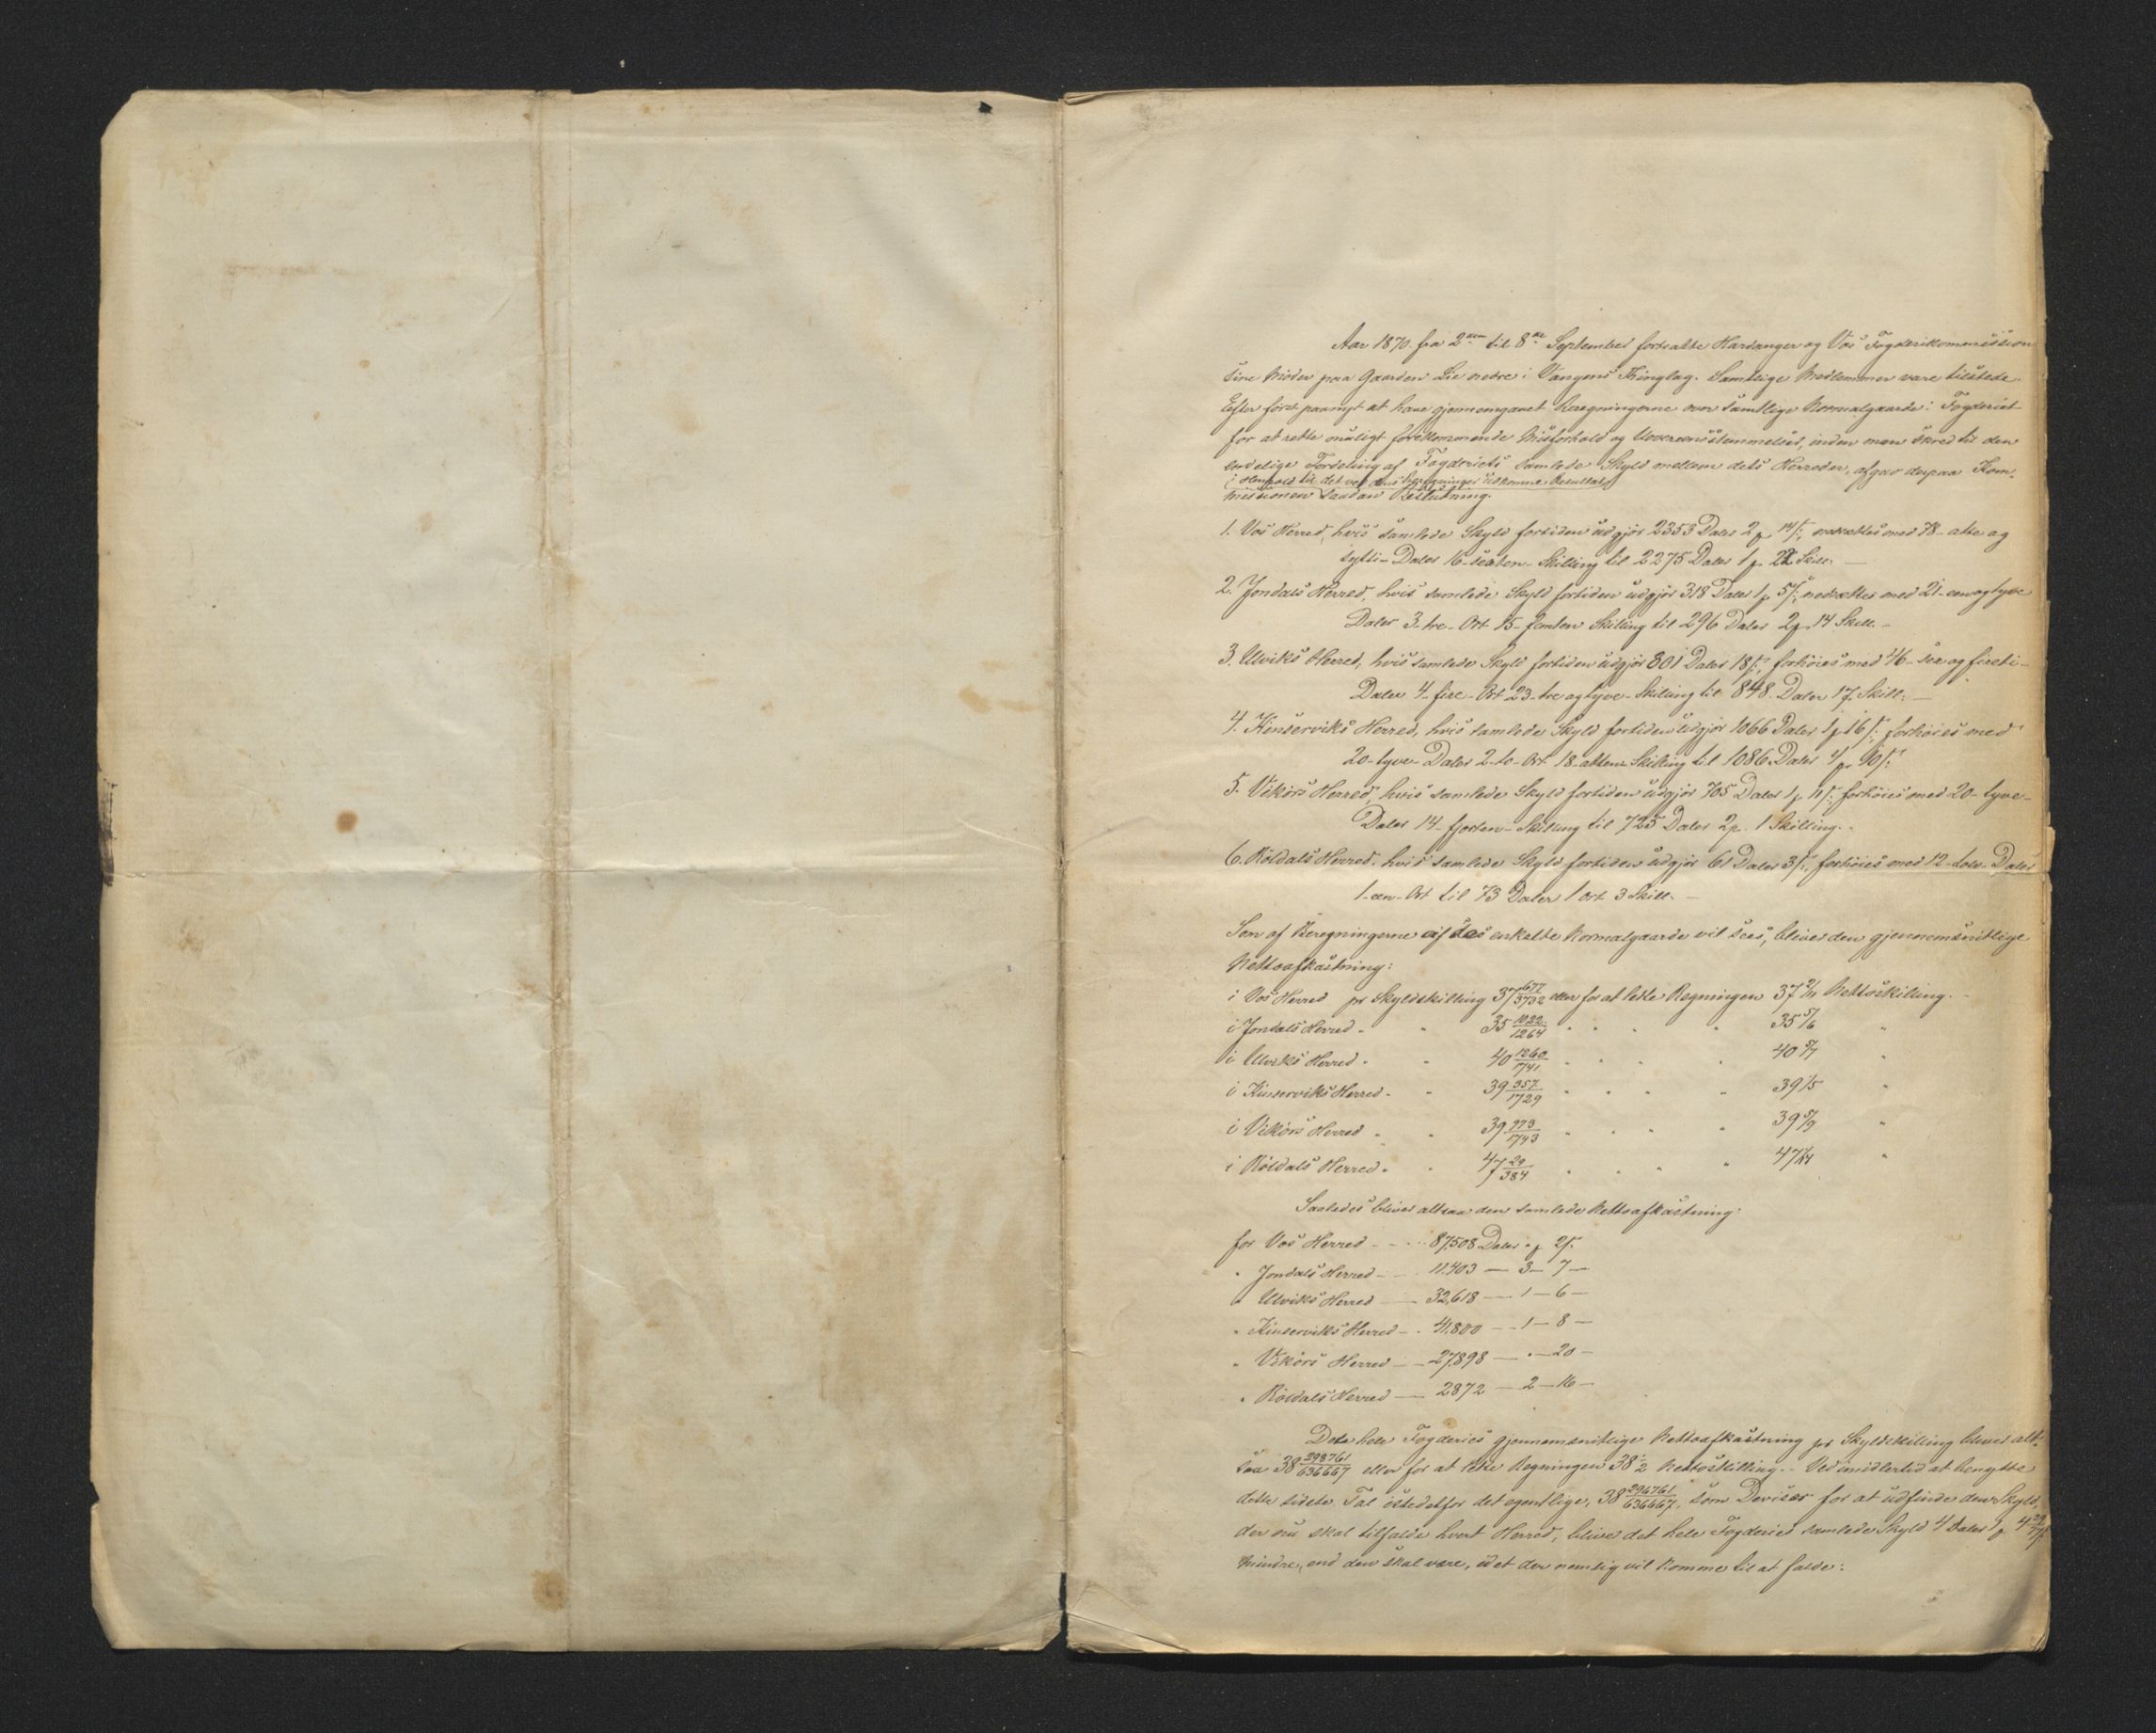 Aar 1870. fra 2den til 8de September fortsatte Hardanger og Vos Fogderikommission
sine Møder paa Gaarden Lie nedre i Vangens Thinglag. Samtlige Medlemmer vare tilstede.
Efter først paanyt at have gjennemgaaet Beregningerne over samtlige Normalgaarde i Fogderiet
for at rette muligt forekommende Misforhold og Uoverensstemmelser, inden man skred til den
endelige Fordeling af Fogderiets samlede Skyld mellem dets Herreder, afgav derpaa Kom-
i Henhold til det ved dens Beregninger udkomne Resultat
missionen saadan Beslutning.
1. Vos Herred, hvis samlede Skyld fortiden udgjør 2353 Daler 2 p 14 ß, nedsættes med 78- otte og
sytti- Daler 16- sexten- Skilling til 2275 Daler 1 p 22 Skill:
2. Jondals Herred, hvis samlede Skyld fortiden udgjør 318 Daler 1 p 5 ß, nedsættes med 21- een og tyve
Daler 3- tre- Ort 15- femten Skilling til 296 Daler 2 p 14 Skill.
3. Ulviks Herred, hvis samlede Skyld fortiden udgjør 801 Daler 18 ß, forhøies med 46- sex og fireti-
Daler 4- fire- Ort 23- tre og tyve- Skilling til 848 Daler 17 Skill:
4. Kinserviks Herred, hvis samlede Skyld fortiden udgjør 1066 Daler 1 p 16 ß, forhøies med
20- tyve- Daler 2- to- Ort 18- atten- Skilling til 1086 Daler 4 p 10 ß
5. Vikørs Herred, hvis samlede Skyld fortiden udgjør 705 Daler 1 p 11 ß, forhøies med 20- tyve-
Daler 14- fjorten- Skilling til 725 Daler 2 p 1 Skilling.
6. Røldals Herred, hvis samlede Skyld fortiden udgjør 61 Daler 3 ß, forhøies med 12- tolv- Daler
1- een- Ort til 73 Daler 1 Ort 3 Skill.
Som af Beregningerne af de enkelte Normalgaarde vil sees, bliver den gjennemsnitlige
Nettoafkastning:
i Vos Herred pr Skyldskilling 37 677/3732 eller for at lette Regningen 37 2/11 Nettoskilling.
i Jondals Herred " " 35 1022/1264 " " " " 35 5/6 "
i Ulviks Herred " " 40 1260/1741 " " " " 40 5/7 "
i Kinserviks Herred " " 39 357/1729 " " " " 39 1/5 "
i Vikørs Herred " " 39 973/1743 " " " " 39 5/9 "
i Røldals Herred " " 47 29/384 " " " " 47 1/14 "
Saaledes bliver altsaa den samlede Nettoafkastning:
for Vos Herred - - - 87,508 Daler " p 2 ß.
" Jondals Herred - - 11,403 — 3 — 7 —
" Ulviks Herred — 32,618 — 1 — 6 —
" Kinserviks Herred - - 41,800 — 1 — 8 —
" Vikørs Herred — 27,898 — " — 20 —
" Røldals Herred — 2872 — 2 — 16 —
Dette hele Fogderies gjennemsnitlige Nettoafkastning pr Skyldskilling bliver alt-
saa 38 298761/636667 eller for at lette Regningen 38 1/2 Nettoskilling. - Ved imidlertid at benytte
dette sidste Tal istedetfor det egentlige, 38 298761/636667, som Devisor for at udfinde den Skyld,
der nu skal tilfalde hvert Herred, bliver det hele Fogderies samlede Skyld 4 Daler 1 p
mindre, end den skal være, idet der nemlig vil komme til at falde: